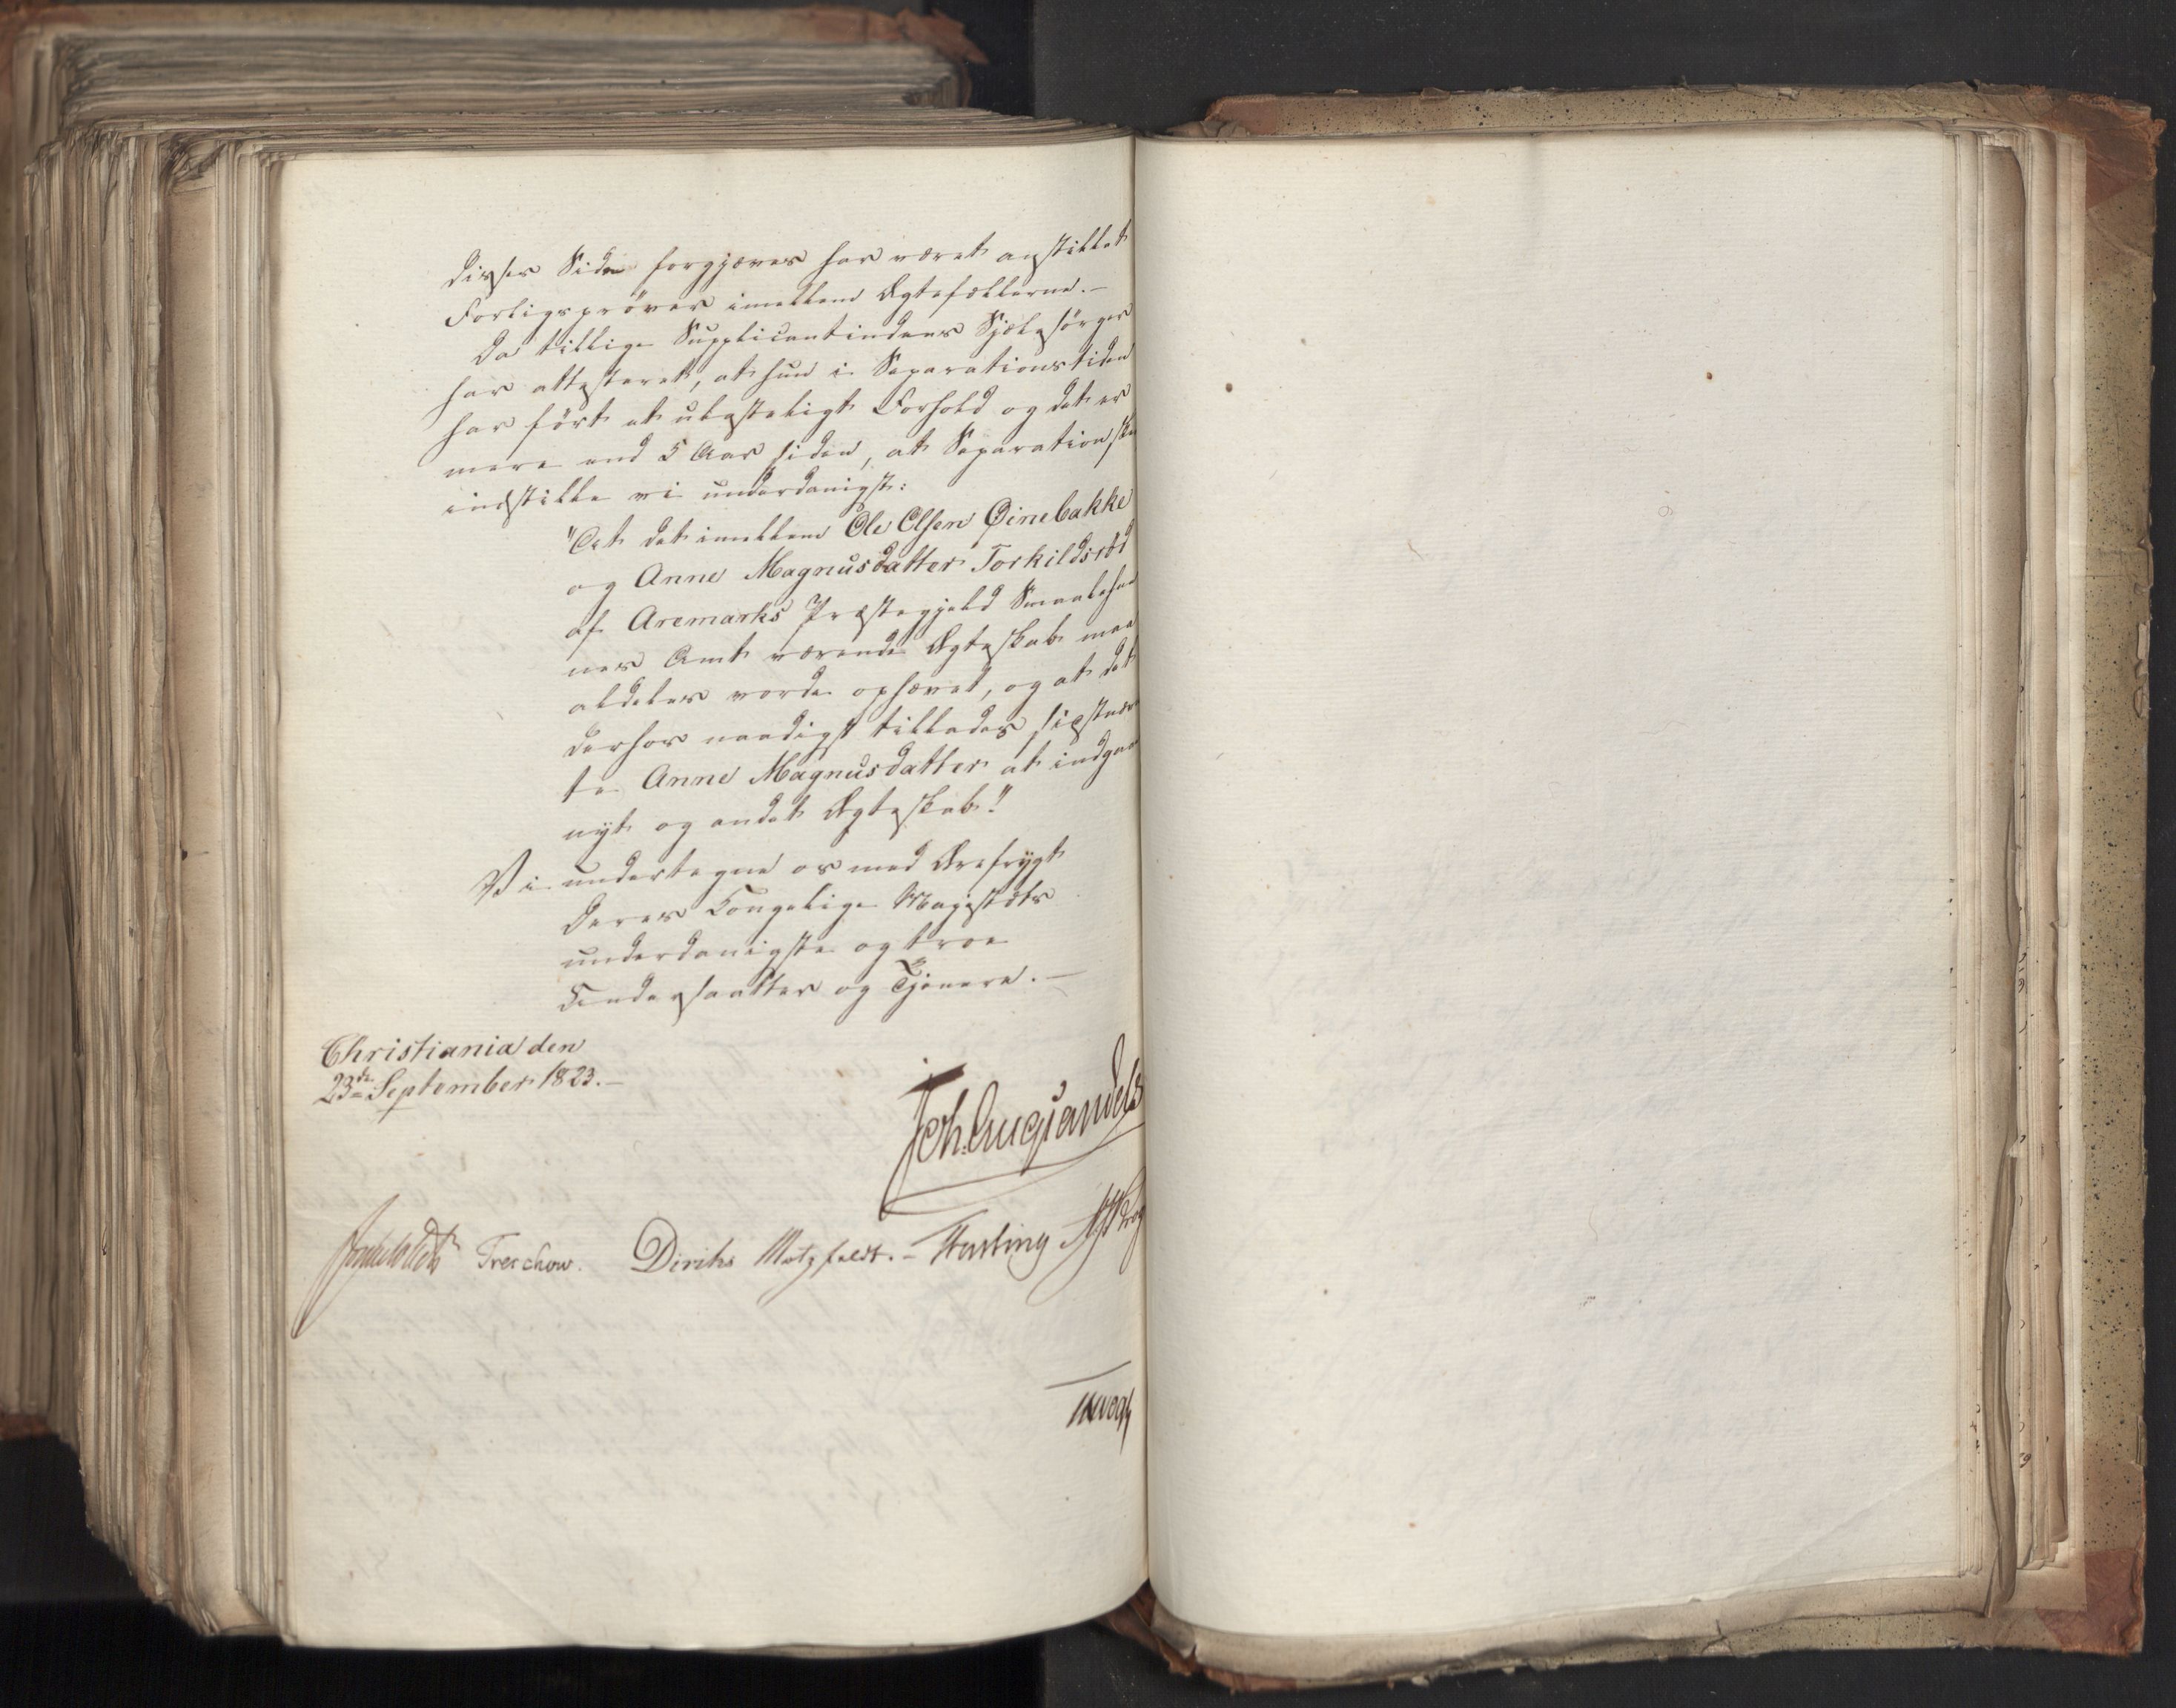 disses Side forgjæves har været anstillet
Forligsprøver imellem Ægtefællerne.—
Da tillige Supplicantindens Sjælesørger
har attesteret, at hun i Separationstiden
har ført et ulasteligt Forhold og det er
mere end 5 Aar siden, at Separation
indstille vi underdanigst:
"At det imellem Ole Olsen Øinebakke
og Anne Magnusdatter Torkildsrød
af Aremarks Præstegjeld Smaalehne
nes Amt værende Ægteskab maa
aldeles vorde ophævet, og at det
derhos naadigst tillades sidstnævn
te Anne Magnusdatter at indgaae
nyt og andet Ægteskab."
Vi undertegne os med Ærefrygt
Deres Kongelige Majestæts
underdanigste og troe
Undersaatter og Tjenere.—
Christiania den
23de September 1823.—
Joh. Aug Sandels
Treschow. Diriks Motzfeldt.— Fasting